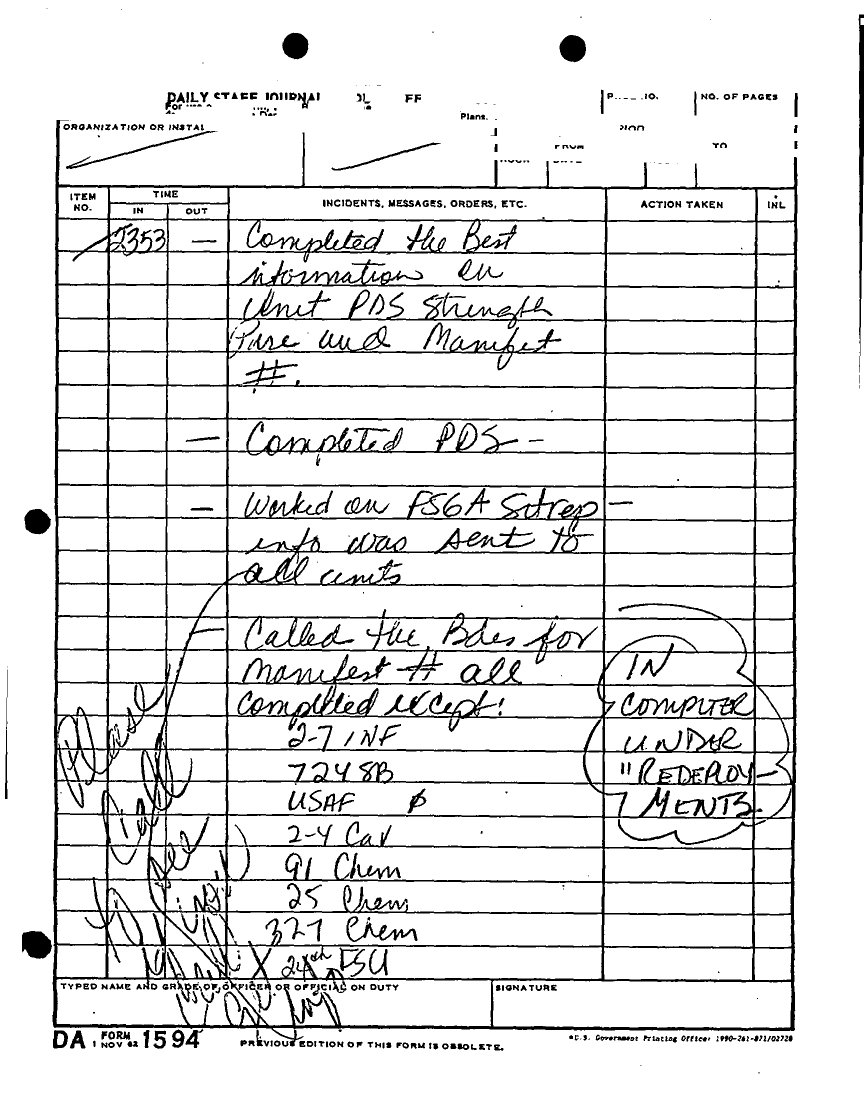 DAILY STAFF JOURNAL
NO. OF PAGES
Plans.
ORGANIZATION OR INSTAL
FROM
TO
ITEM NO.
TIME
IN
OUT
INCIDENTS, MESSAGES, ORDERS, ETC.
ACTION TAKEN
INL
2353 — Completed the Best
information on
Unit PDS Strength
and Manifest
#.
— Completed PDS –
— Worked on FSGA Sitrep —
info was sent to
all units
— Called the Bdes for
Manifest # all
completed except:
2-7 INF
724 SB
USAF ø
2-4 Cav
91 Chem
25 Chem
327 Chem
24th FSU
IN
COMPUTER
UNDER
"REDEPLOY-
MENTS.
Please
Call
to see
if you
can
get
TYPED NAME AND GRADE OF OFFICER OR OFFICIAL ON DUTY
SIGNATURE
DA FORM 1 NOV 62 1594
PREVIOUS EDITION OF THIS FORM IS OBSOLETE.
*U.S. Government Printing Office: 1990-261-871/02728